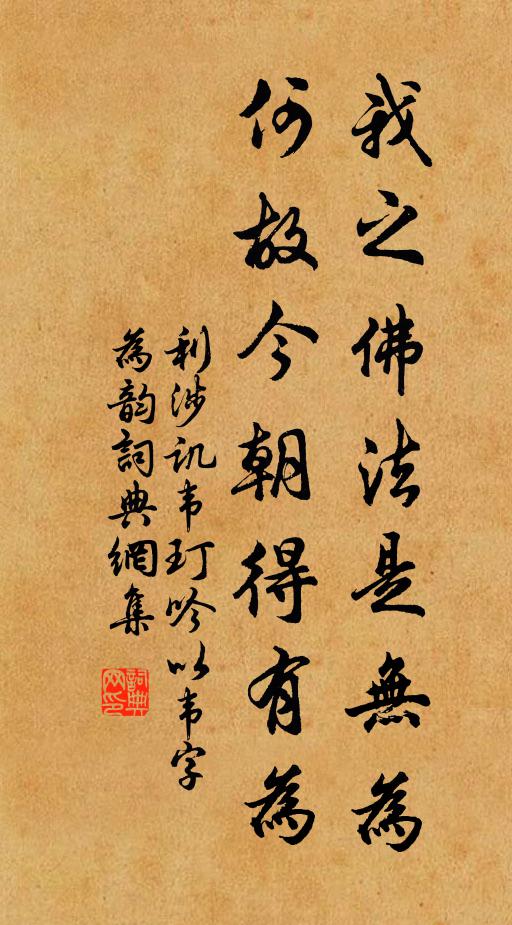 我之佛法是無為
何故今朝得有為
利涉讥韦玎吟以韦字
為韵詞典網集
詞典网印